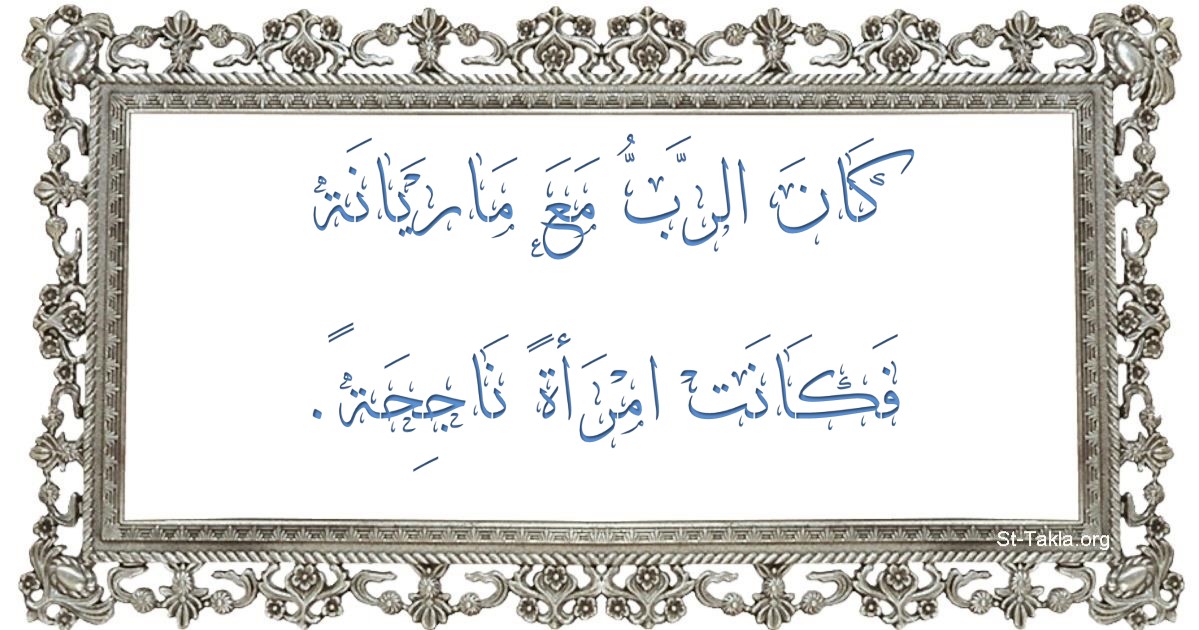 كَانَ الرَّبُّ مَعَ مَاريَانَة
فَكَانَت امْرَأَةً نَاجِحَةً.
St-Takla.org